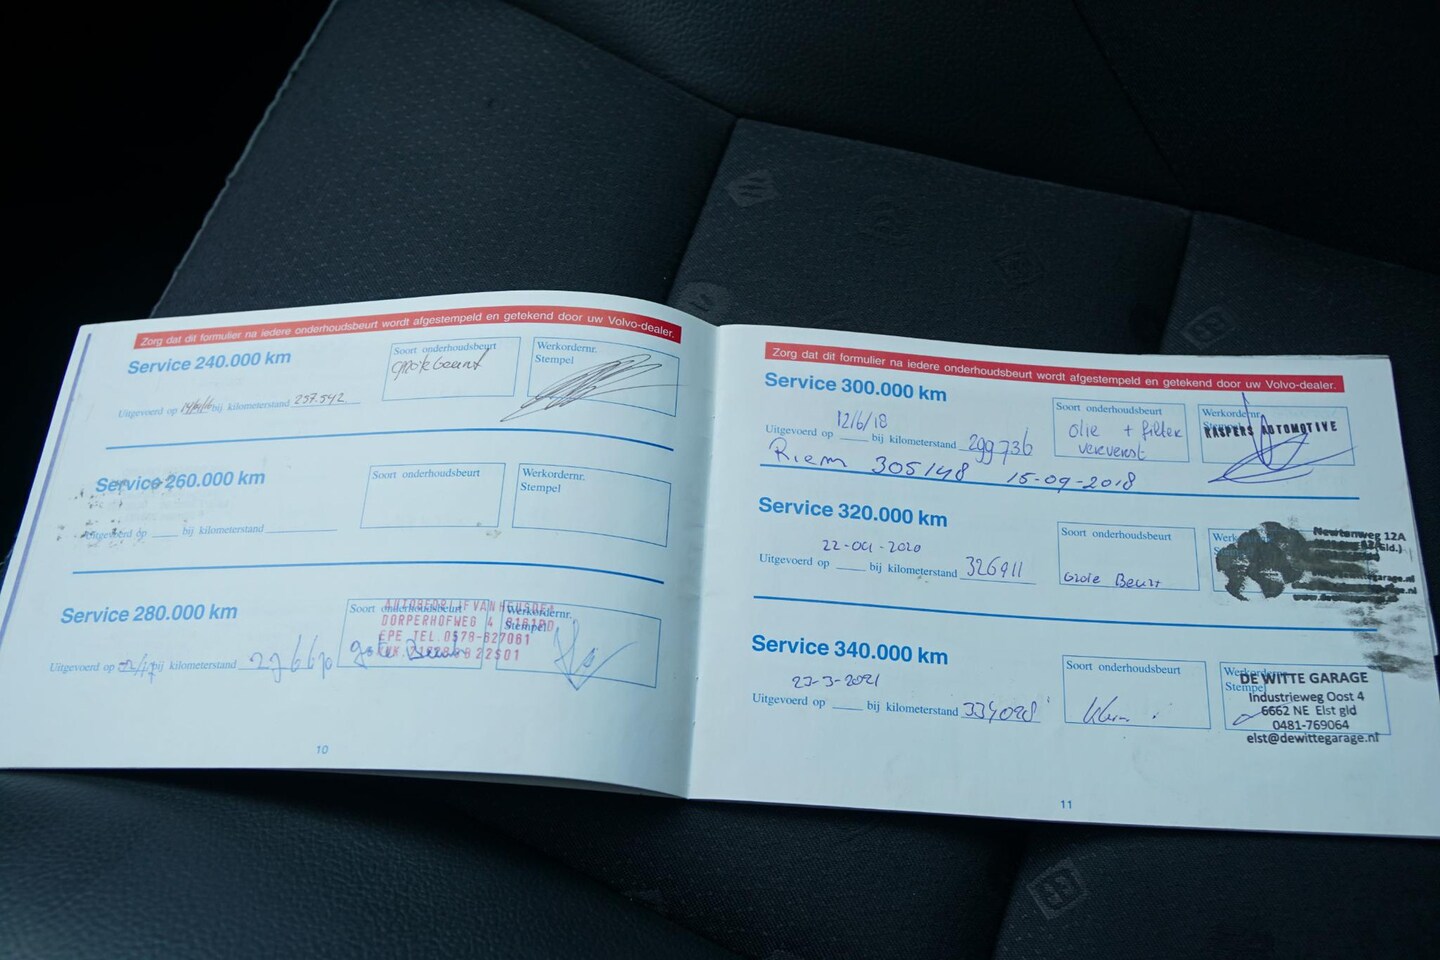 Zorg dat dit formulier na iedere onderhoudsbeurt wordt afgestempeld en getekend door uw Volvo-dealer.
Service 240.000 km
Soort onderhoudsbeurt
Werkordernr.
Stempel
Uitgevoerd op bij kilometerstand 257.542
Service 260.000 km
Soort onderhoudsbeurt
Werkordernr.
Stempel
Uitgevoerd op bij kilometerstand
Service 280.000 km
Soort onderhoudsbeurt
Werkordernr.
Stempel
AUTOBEDRIJF VAN
DORPERHOFWEG 4
EPE TEL. 0578-627081
Uitgevoerd op bij kilometerstand
10
Zorg dat dit formulier na iedere onderhoudsbeurt wordt afgestempeld en getekend door uw Volvo-dealer.
Service 300.000 km
Soort onderhoudsbeurt
olie + filter
ververst
Werkordernr.
KASPERS AUTOMOTIVE
12/6/18
Uitgevoerd op bij kilometerstand 299736
Riem 305148 15-09-2018
Service 320.000 km
Soort onderhoudsbeurt
Grote Beurt
Newtonweg 12A
22-01-2020
Uitgevoerd op bij kilometerstand 326911
Service 340.000 km
Soort onderhoudsbeurt
Stempel
DE WITTE GARAGE
Industrieweg Oost 4
6662 NE Elst gld
0481-769064
elst@dewittegarage.nl
23-3-2021
Uitgevoerd op bij kilometerstand 334098
11